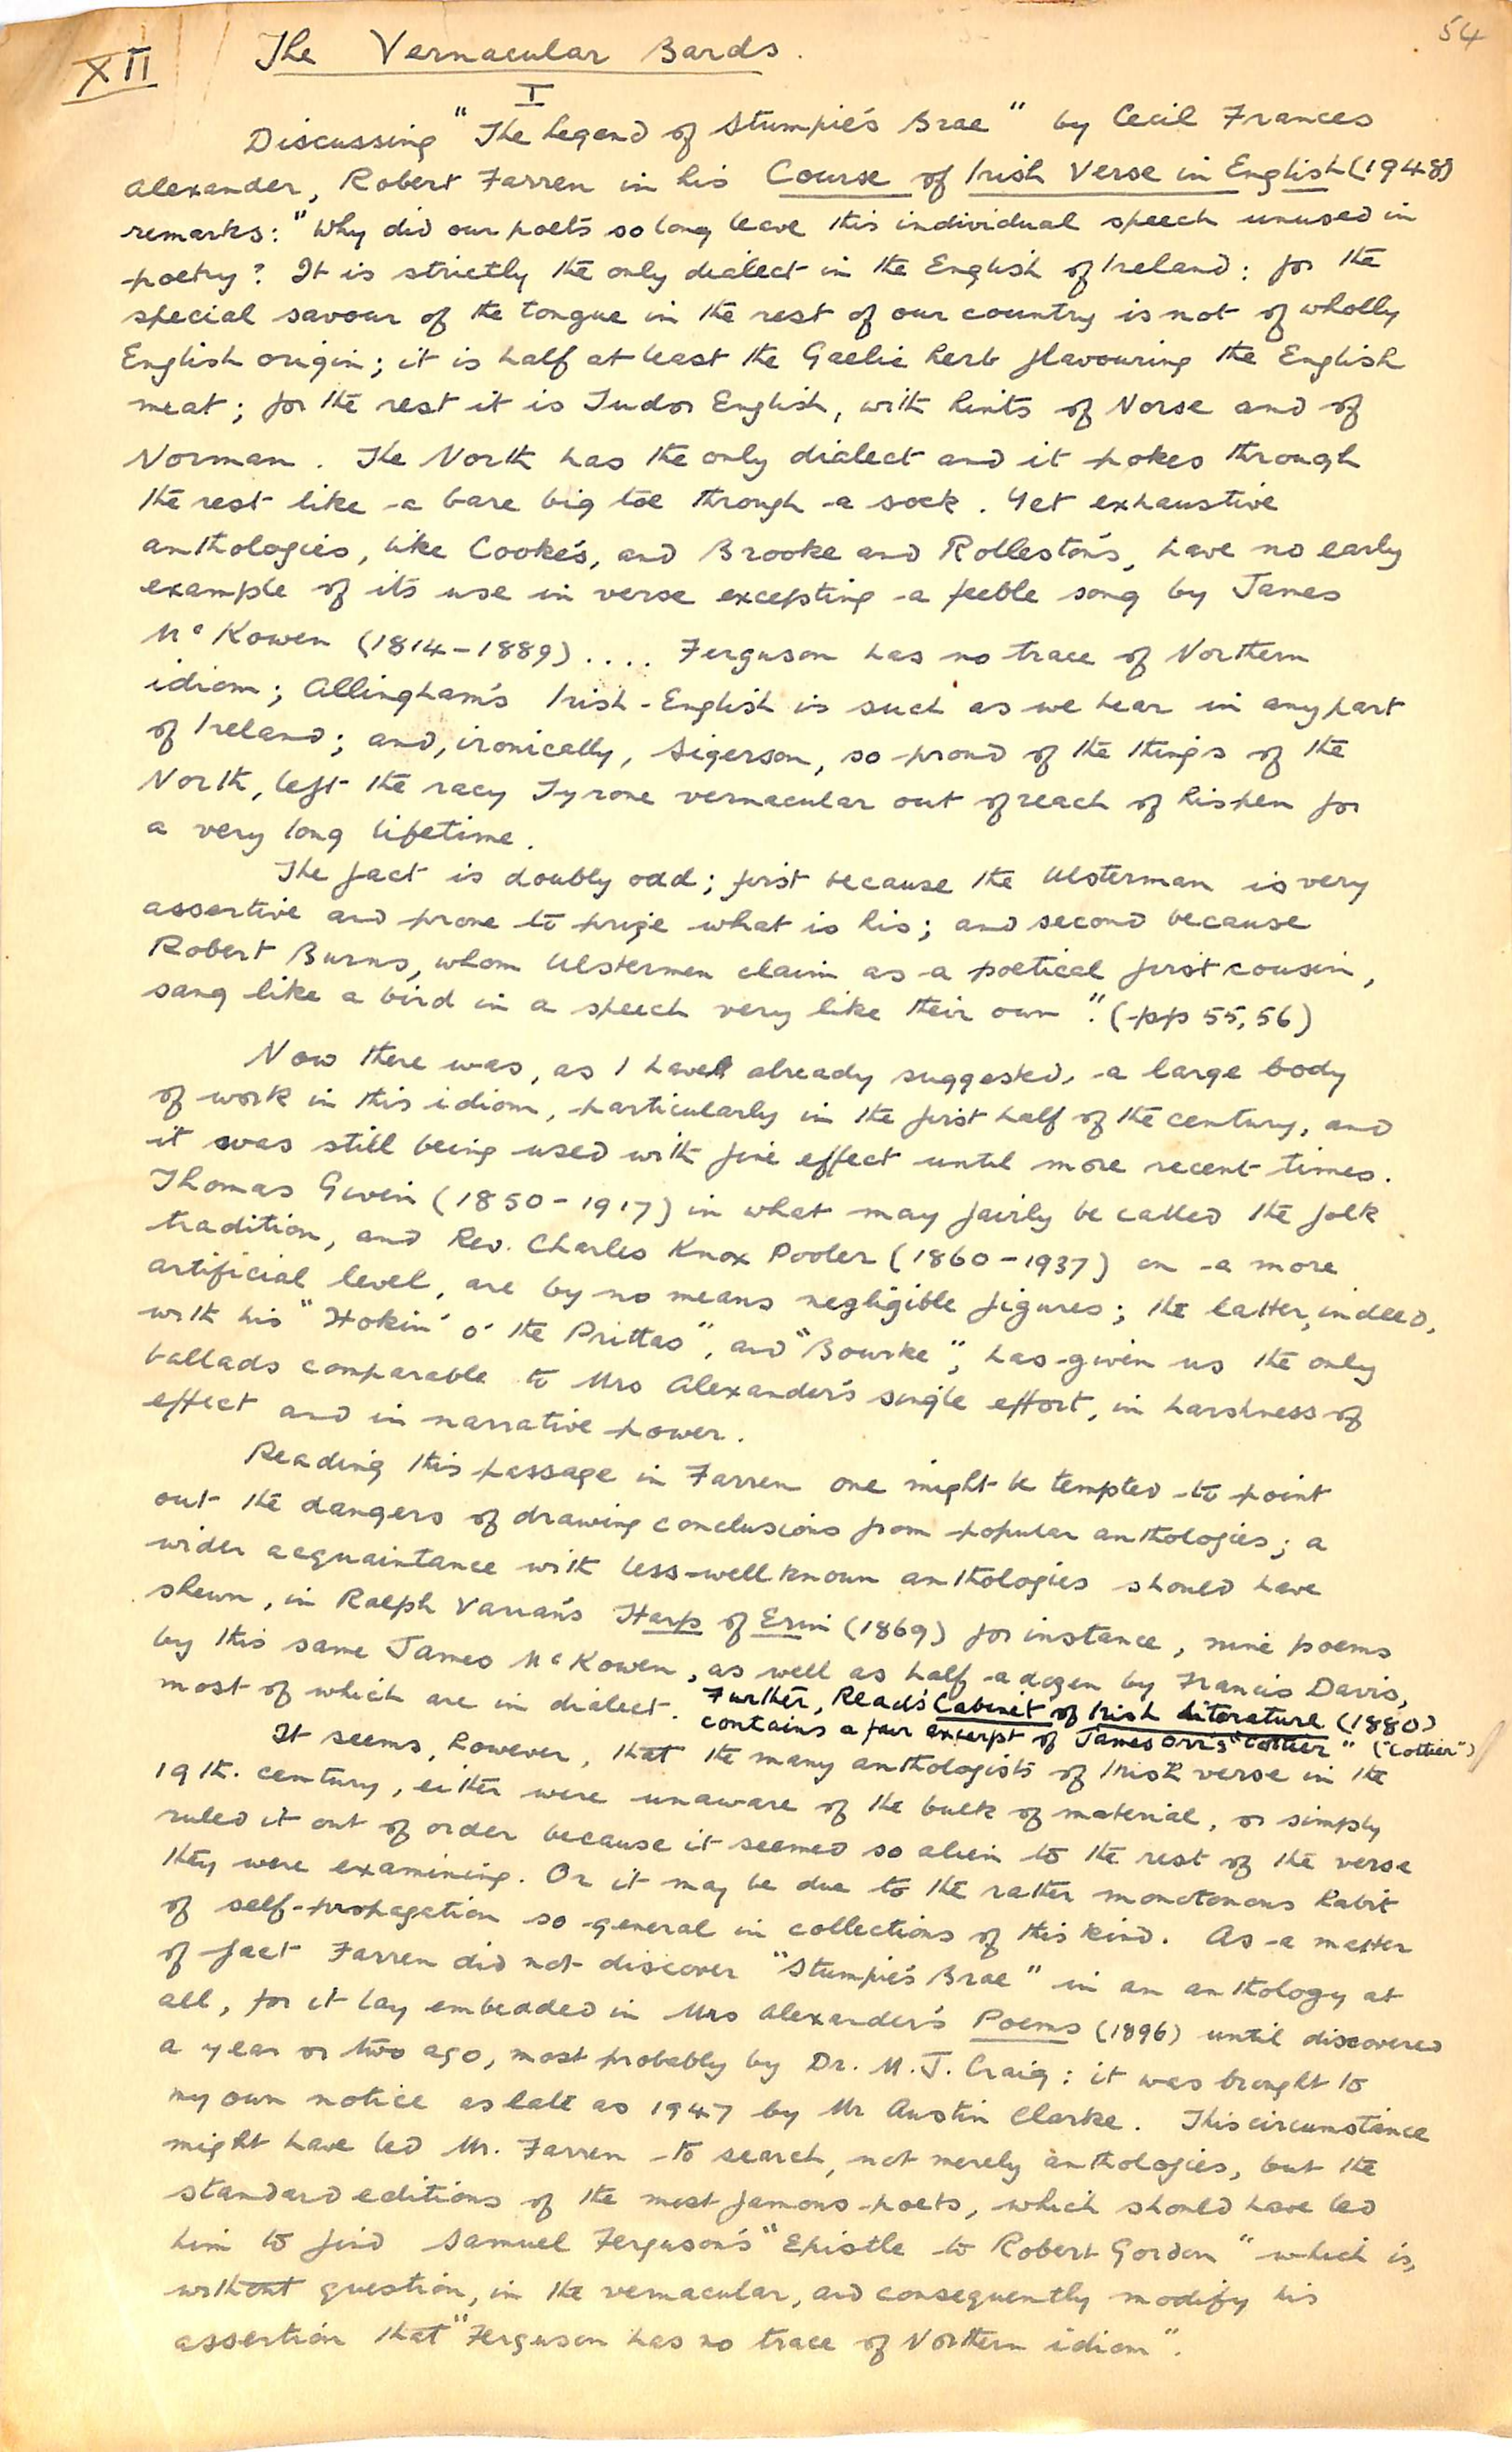 54
XII The Vernacular Bards.
I
Discussing "The Legend of Stumpie's Brae" by Cecil Frances
Alexander, Robert Farren in his Course of Irish Verse in English (1948)
remarks: "Why did our poets so long leave this individual speech unused in
poetry? It is strictly the only dialect in the English of Ireland: for the
special savour of the tongue in the rest of our country is not of wholly
English origin; it is half at least the Gaelic herb flavouring the English
meat; for the rest it is Tudor English, with hints of Norse and of
Norman. The North has the only dialect and it pokes through
the rest like a bare big toe through a sock. Yet exhaustive
anthologies, like Cooke's, and Brooke and Rolleston's, have no early
example of its use in verse excepting a feeble song by James
McKowen (1814-1889).... Ferguson has no trace of Northern
idiom; Allingham's Irish-English is such as we hear in any part
of Ireland; and, ironically, Sigerson, so proud of the things of the
North, left the racy Tyrone vernacular out of reach of his pen for
a very long lifetime.
The fact is doubly odd; first because the Ulsterman is very
assertive and prone to prize what is his; and second because
Robert Burns, whom Ulstermen claim as a poetical first cousin,
sang like a bird in a speech very like their own". (pp 55,56)
Now there was, as I have already suggested, a large body
of work in this idiom, particularly in the first half of the century, and
it was still being used with fine effect until more recent times.
Thomas Given (1850-1917) in what may fairly be called the folk
tradition, and Rev. Charles Knox Pooler (1860-1937) on a more
artificial level, are by no means negligible figures; the latter, indeed,
with his "Hokin' o' the Prittas", and "Bourke", has given us the only
ballads comparable to Mrs Alexander's single effort, in harshness of
effect and in narrative power.
Reading this passage in Farren one might be tempted to point
out the dangers of drawing conclusions from popular anthologies; a
wider acquaintance with less-well known anthologies should have
shewn, in Ralph Varian's Harp of Erin (1869) for instance, nine poems
by this same James McKowen, as well as half a dozen by Francis Davis,
most of which are in dialect. Further, Read's Cabinet of Irish Literature (1880)
contains a fair excerpt of James Orr's "Cottier" ("Cottier")
It seems, however, that the many anthologists of Irish verse in the
19th. century, either were unaware of the bulk of material, or simply
ruled it out of order because it seemed so alien to the rest of the verse
they were examining. Or it may be due to the rather monotonous habit
of self-propagation so general in collections of this kind. As a matter
of fact Farren did not discover "Stumpie's Brae" in an anthology at
all, for it lay embedded in Mrs Alexander's Poems (1896) until discovered
a year or two ago, most probably by Dr. M. J. Craig: it was brought to
my own notice as late as 1947 by Mr Austin Clarke. This circumstance
might have led Mr. Farren to search, not merely anthologies, but the
standard editions of the most famous poets, which should have led
him to find Samuel Ferguson's "Epistle to Robert Gordon" which is,
without question, in the vernacular, and consequently modify his
assertion that "Ferguson has no trace of Northern idiom".